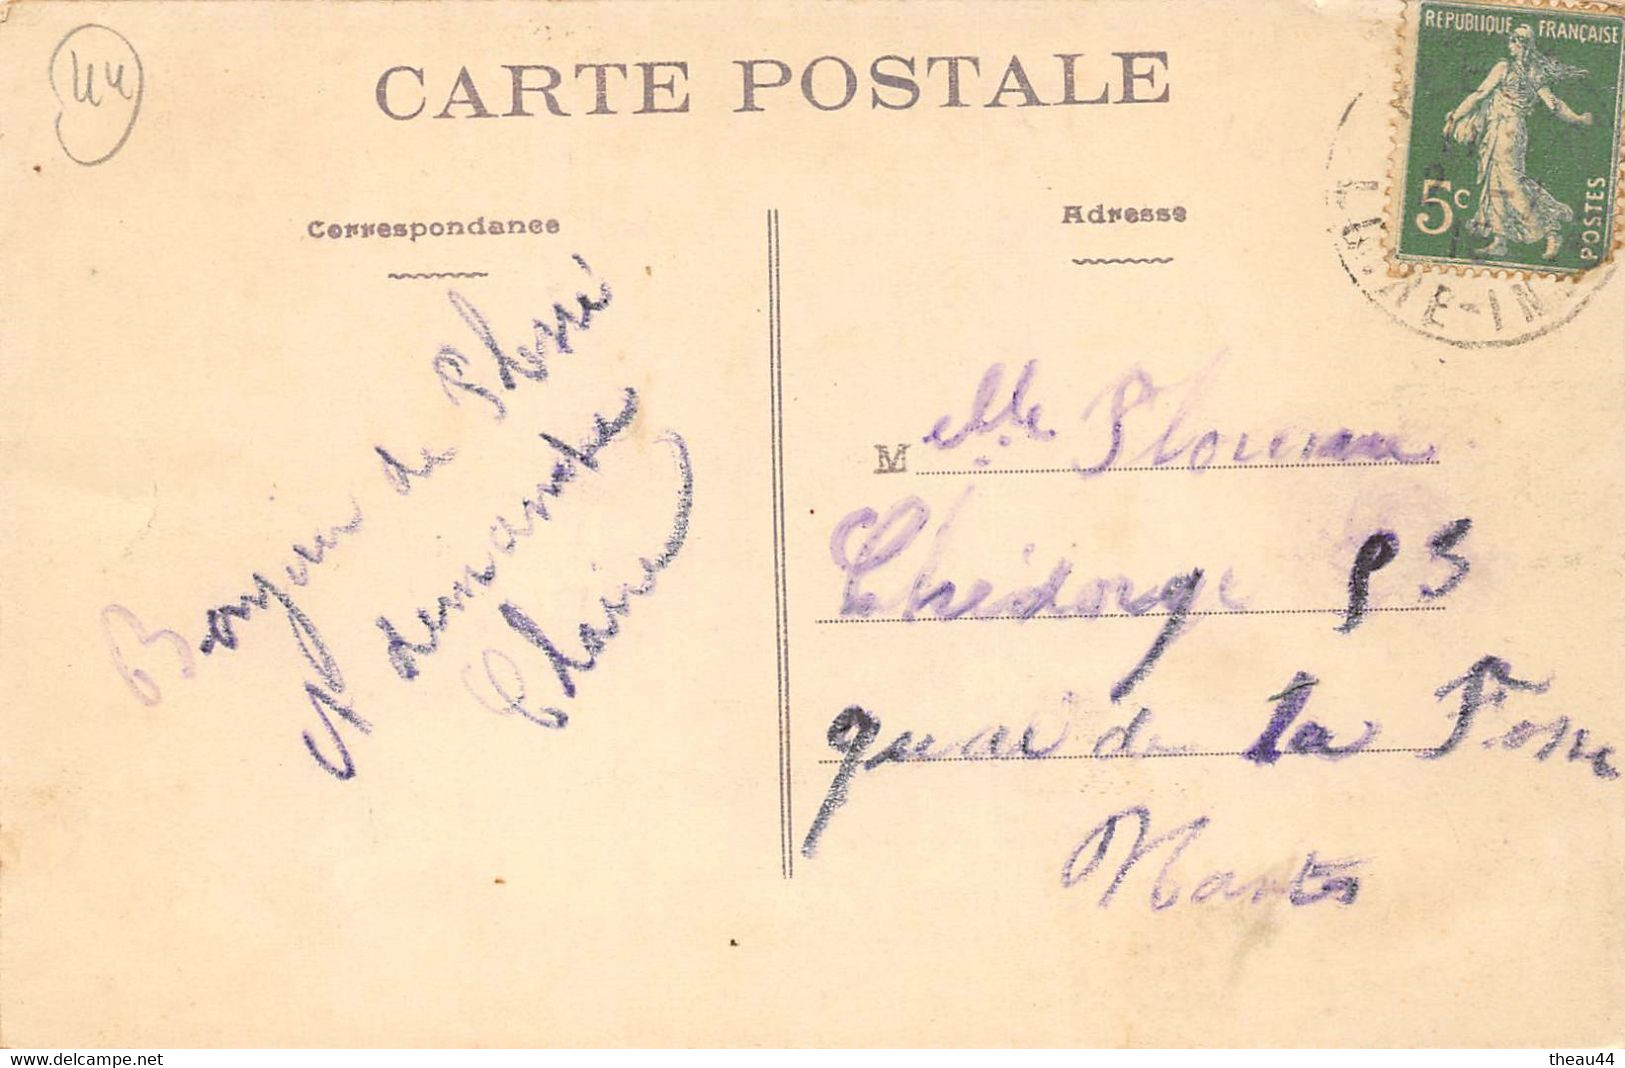 44
CARTE POSTALE
REPUBLIQUE FRANÇAISE
5c
POSTES
LOIRE-IN
Correspondance
Adresse
Bonjour de
et demande
Claire
Melle
quai de la Fosse
Nantes
www.delcampe.net
theau44